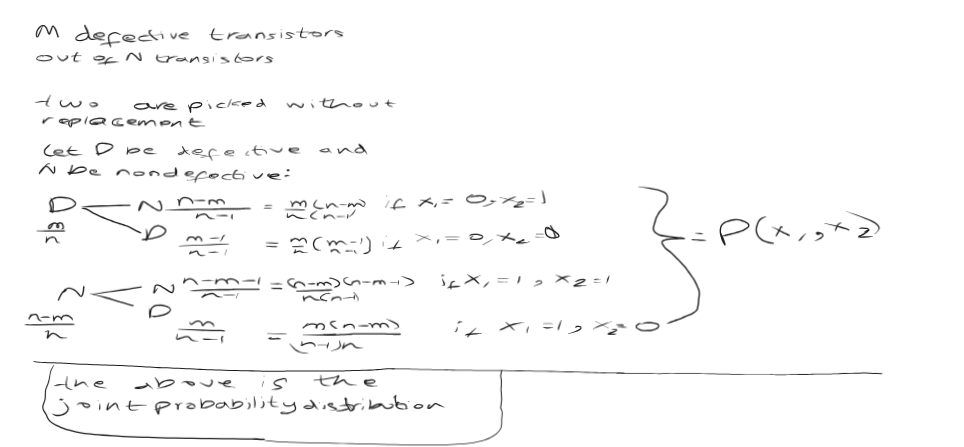 M defective transistors
out of N transistors
two are picked without
replacement
Let D be defective and
N be nondefective:
D N (n-m)/(n-1) = m(n-m)/n(n-1) if x₁ = 0, x₂ = 1
m/n D (m-1)/(n-1) = m/n (m-1/n-1) if x₁ = 0, x₂ = 0
= P(x₁, x₂)
N N (n-m-1)/(n-1) = (n-m)(n-m-1)/n(n-1) if x₁ = 1, x₂ = 1
(n-m)/n D m/(n-1) = m(n-m)/(n-1)n if x₁ = 1, x₂ = 0
the above is the
joint probability distribution